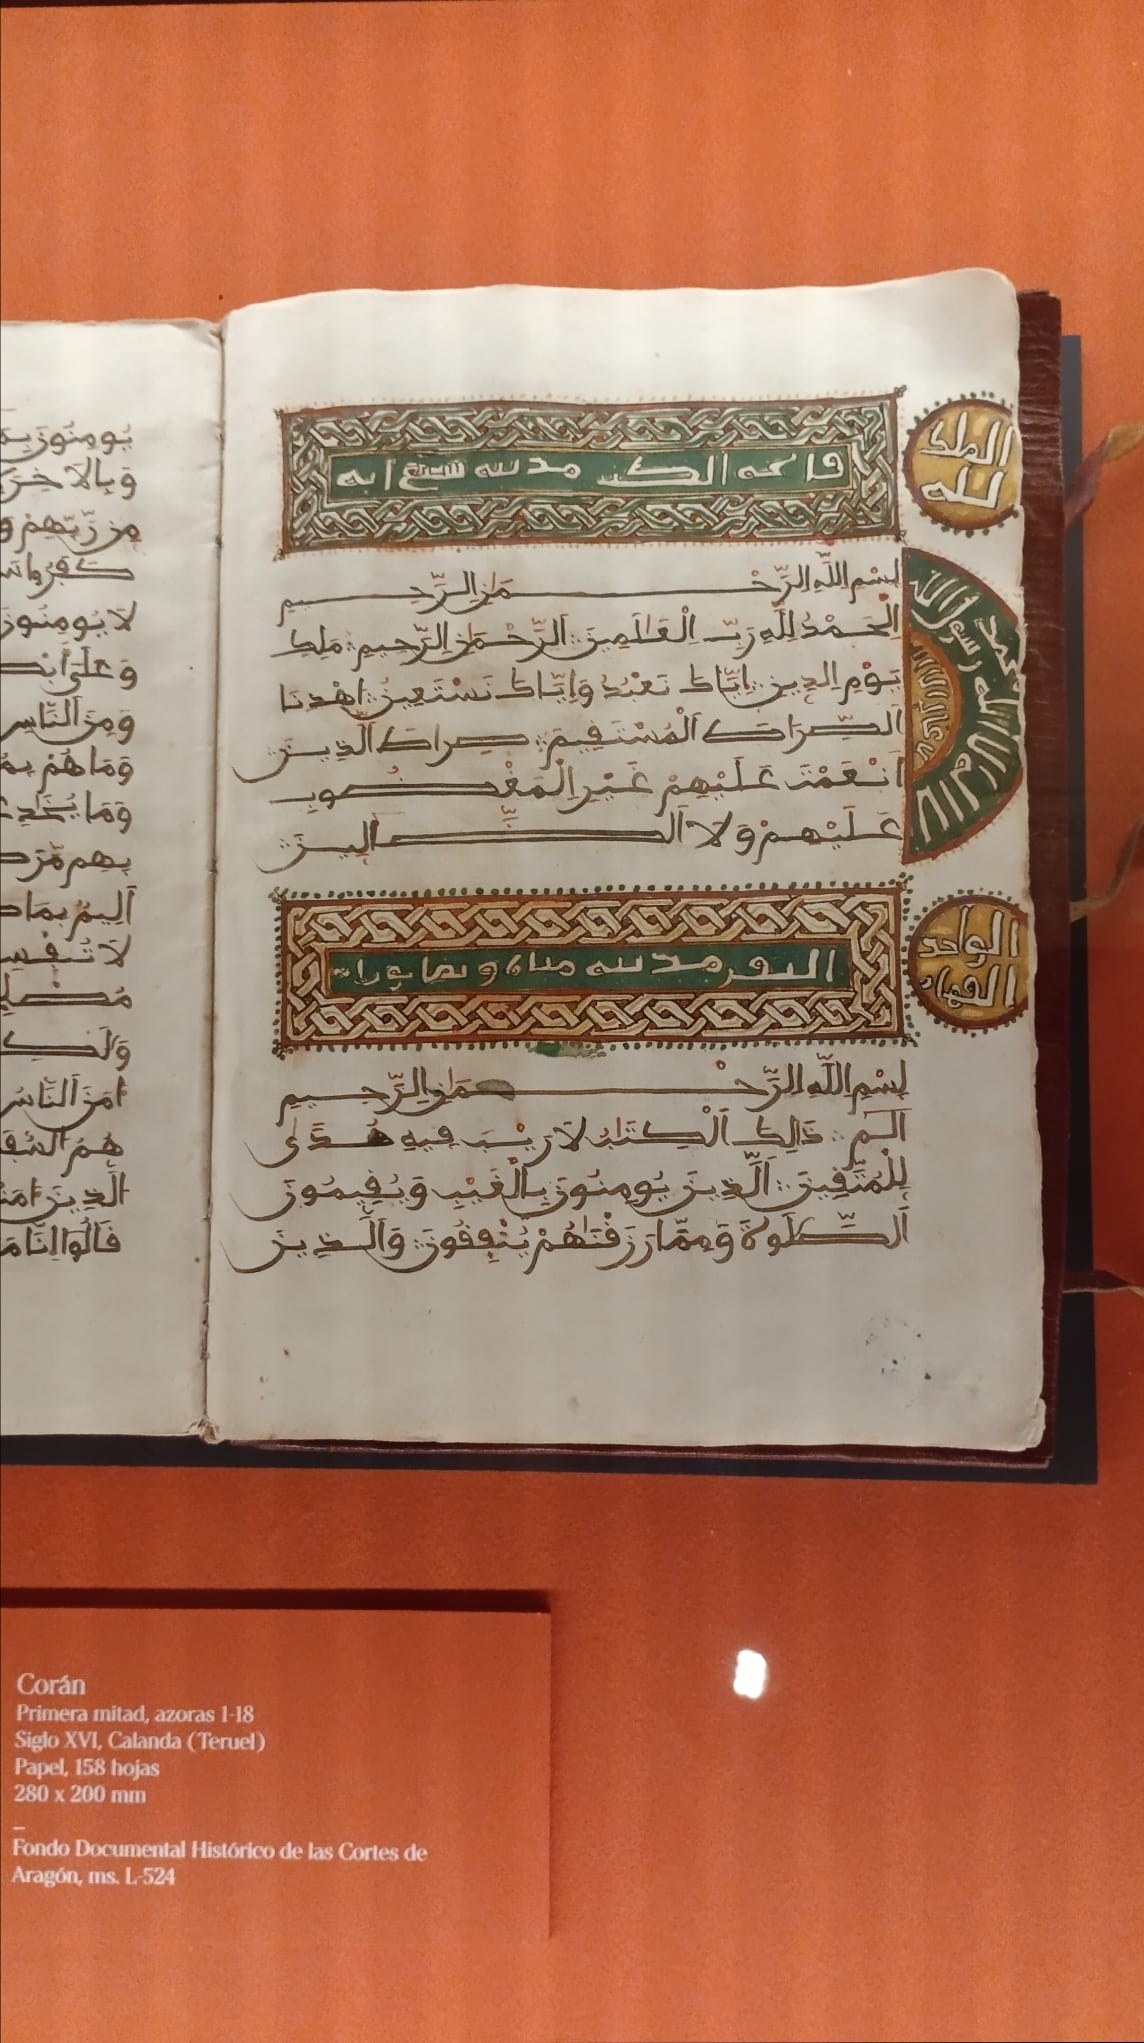 فاتحه الكتب مدنيه سبع ايه
الملك
لله
بِسْمِ اللَّهِ الرَّحْمَٰنِ الرَّحِيمِ
الْحَمْدُ لِلَّهِ رَبِّ الْعَٰلَمِينَ الرَّحْمَٰنِ الرَّحِيمِ مَلِكِ
يَوْمِ الدِينِ إِيَّاكَ نَعْبُدُ وَإِيَّاكَ نَسْتَعِينُ اهْدِنَا
الصِّرَاطَ الْمُسْتَقِيمَ صِرَاطَ الَّذِينَ
أَنْعَمْتَ عَلَيْهِمْ غَيْرِ الْمَغْضُوبِ
عَلَيْهِمْ وَلَا الضَّالِينَ
رسول الله
البقره مدنيه
الواحد
القهار
بِسْمِ اللَّهِ الرَّحْمَٰنِ الرَّحِيمِ
الٓمٓ ذَٰلِكَ الْكِتَٰبُ لَا رَيْبَ فِيهِ هُدًى
لِلْمُتَّقِينَ الَّذِينَ يُومِنُونَ بِالْغَيْبِ وَيُقِيمُونَ
الصَّلَوٰةَ وَمِمَّا رَزَقْنَٰهُمْ يُنْفِقُونَ وَالَّذِينَ
وَبِالَاخِرَ
مِن رَّبِّهِمْ وَ
لَا يُومِنُونَ
وَمِنَ النَّاسِ
وَمَا هُم بِمُ
أَلِيمٌ بِمَا
ءَامَنَ النَّاسُ
هُمُ السُّفَ
الَّذِينَ ءَامَنُ
قَالُوا إِنَّا مَ
Corán
Primera mitad, azoras 1-18
Siglo XVI, Calanda (Teruel)
Papel, 158 hojas
280 x 200 mm
–
Fondo Documental Histórico de las Cortes de
Aragón, ms. L-524